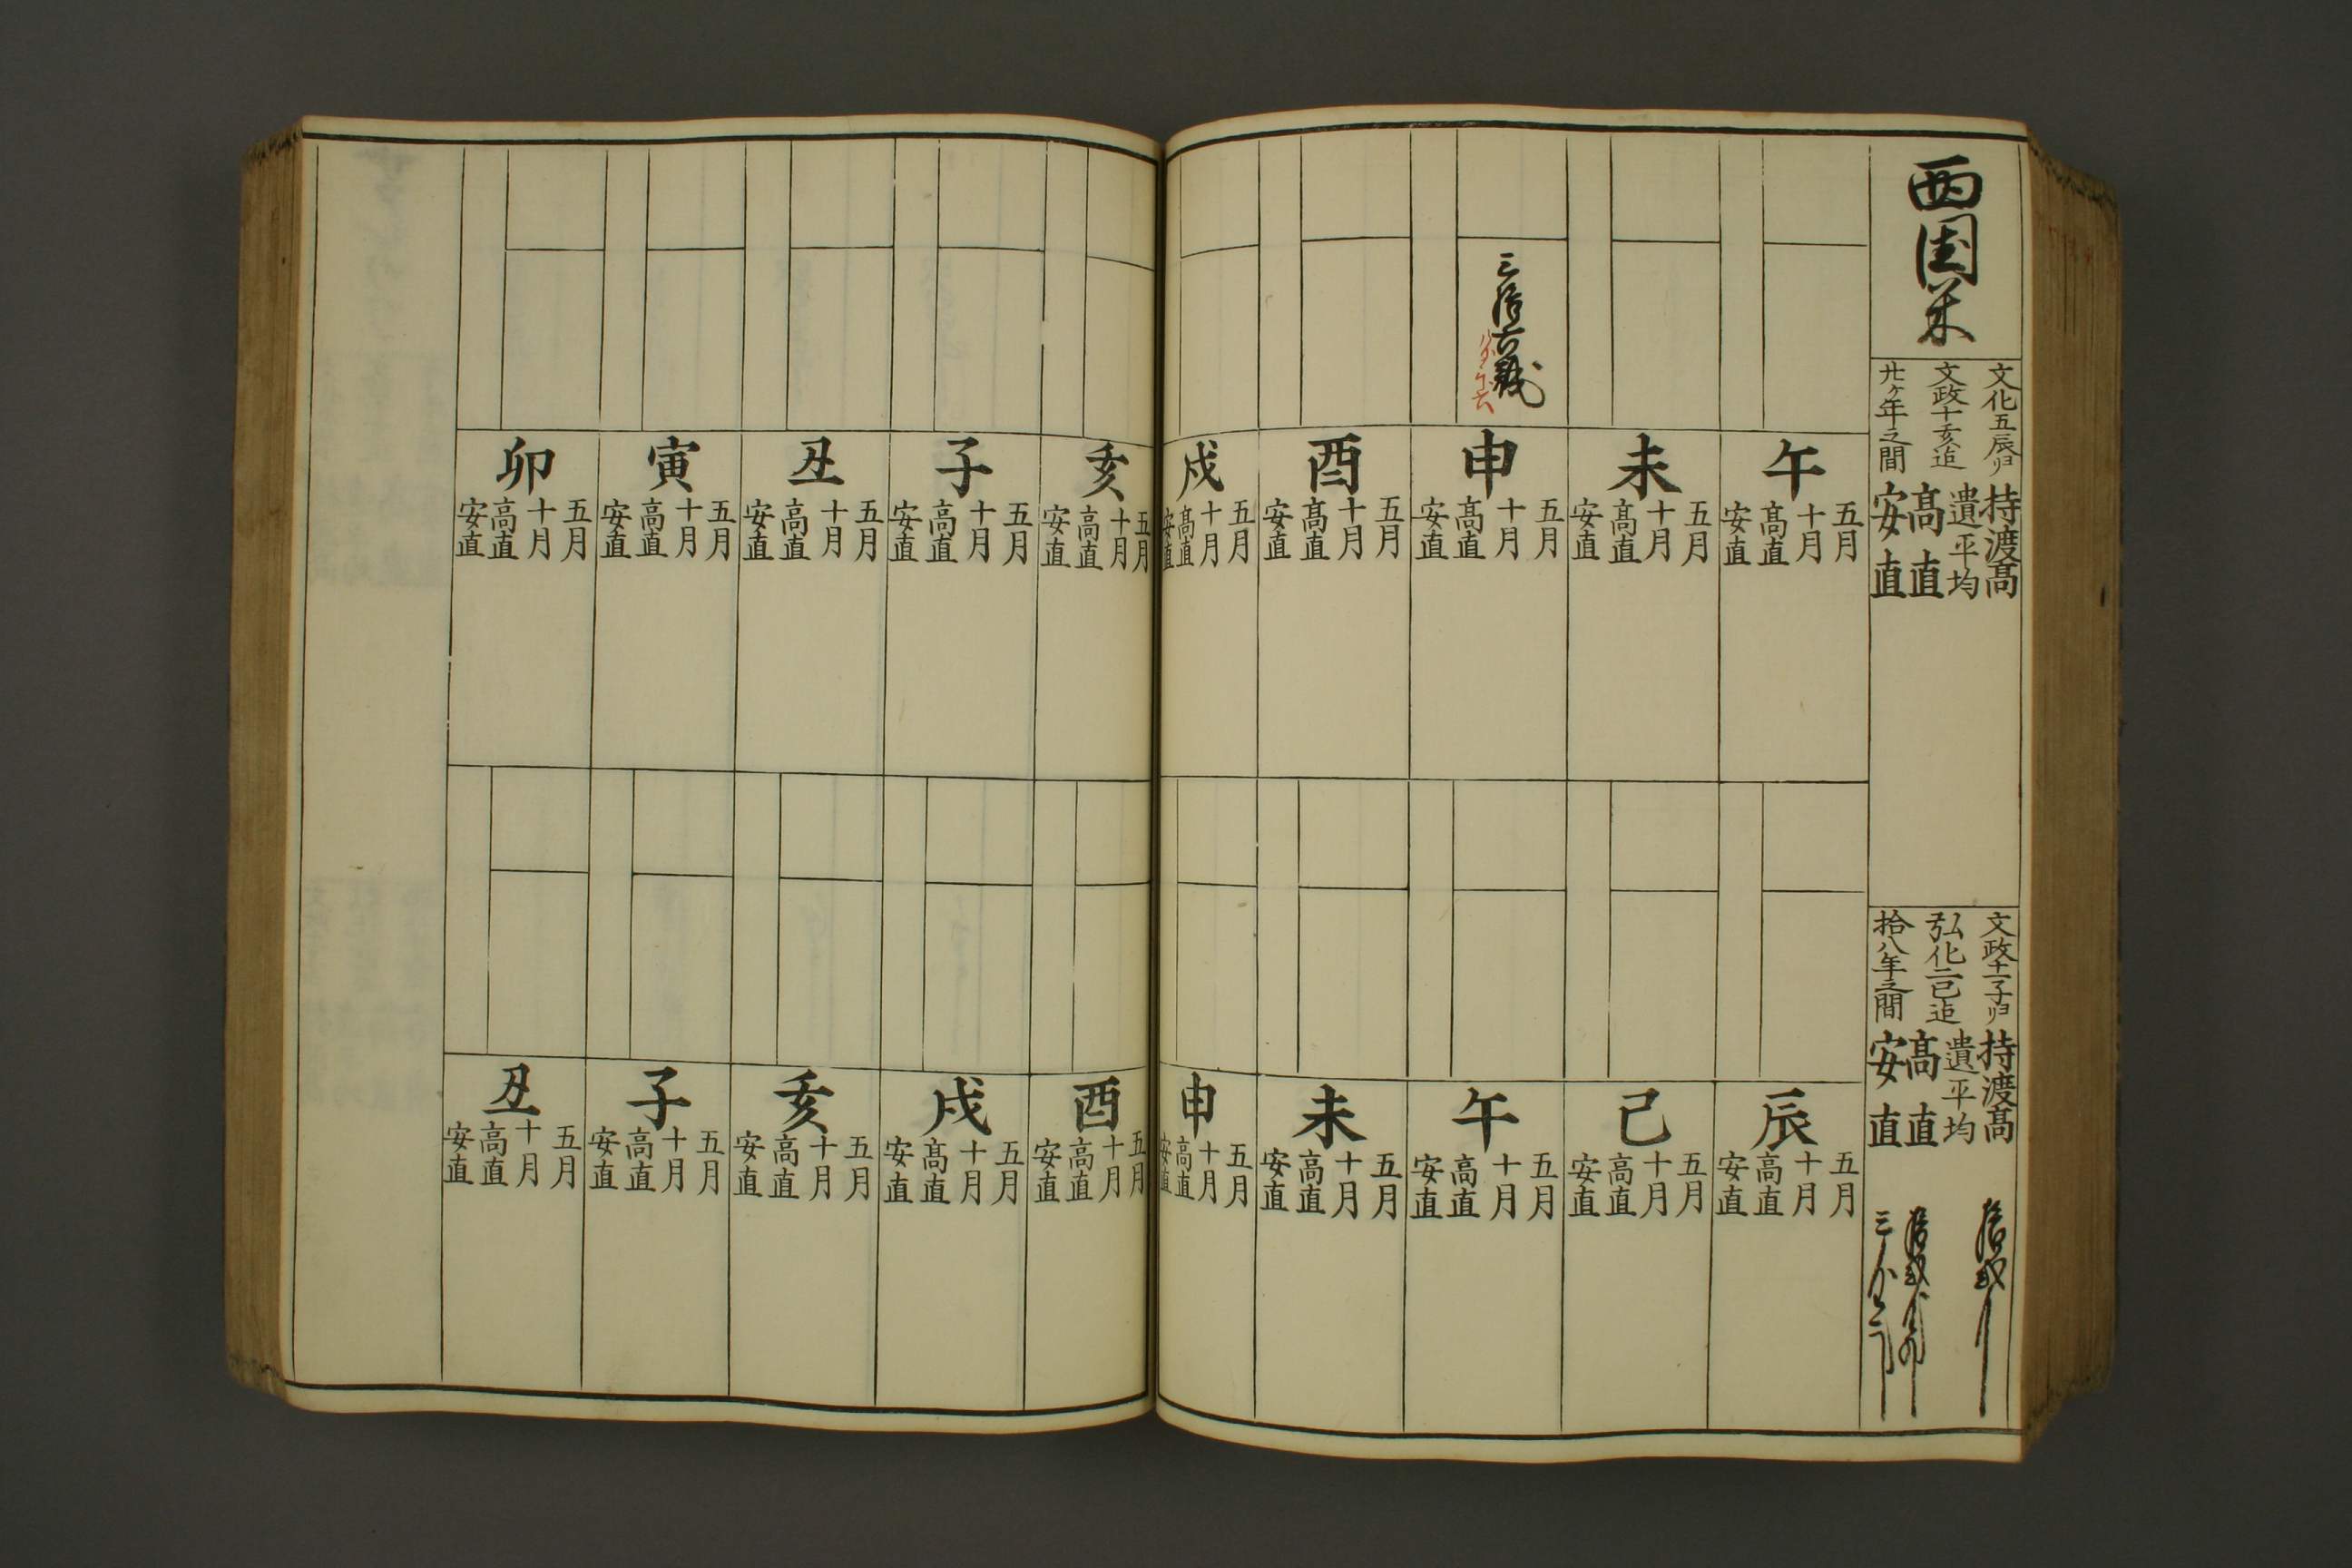 西国米
文化五辰ゟ
文政十亥迠
廿ヶ年之間
持渡髙
遺平均
髙直
安直
文政十一子ゟ
弘化二巳迠
拾八年之間
持渡髙
遺平均
髙直
安直
午
五月
十月
髙直
安直
未
五月
十月
髙直
安直
三拾六
申
五月
十月
髙直
安直
酉
五月
十月
髙直
安直
戌
五月
十月
髙直
安直
亥
五月
十月
高直
安直
子
五月
十月
高直
安直
丑
五月
十月
高直
安直
寅
五月
十月
高直
安直
卯
五月
十月
高直
安直
辰
五月
十月
高直
安直
巳
五月
十月
高直
安直
午
五月
十月
高直
安直
未
五月
十月
高直
安直
申
五月
十月
高直
安直
酉
五月
十月
高直
安直
戌
五月
十月
髙直
安直
亥
五月
十月
高直
安直
子
五月
十月
高直
安直
丑
五月
十月
高直
安直